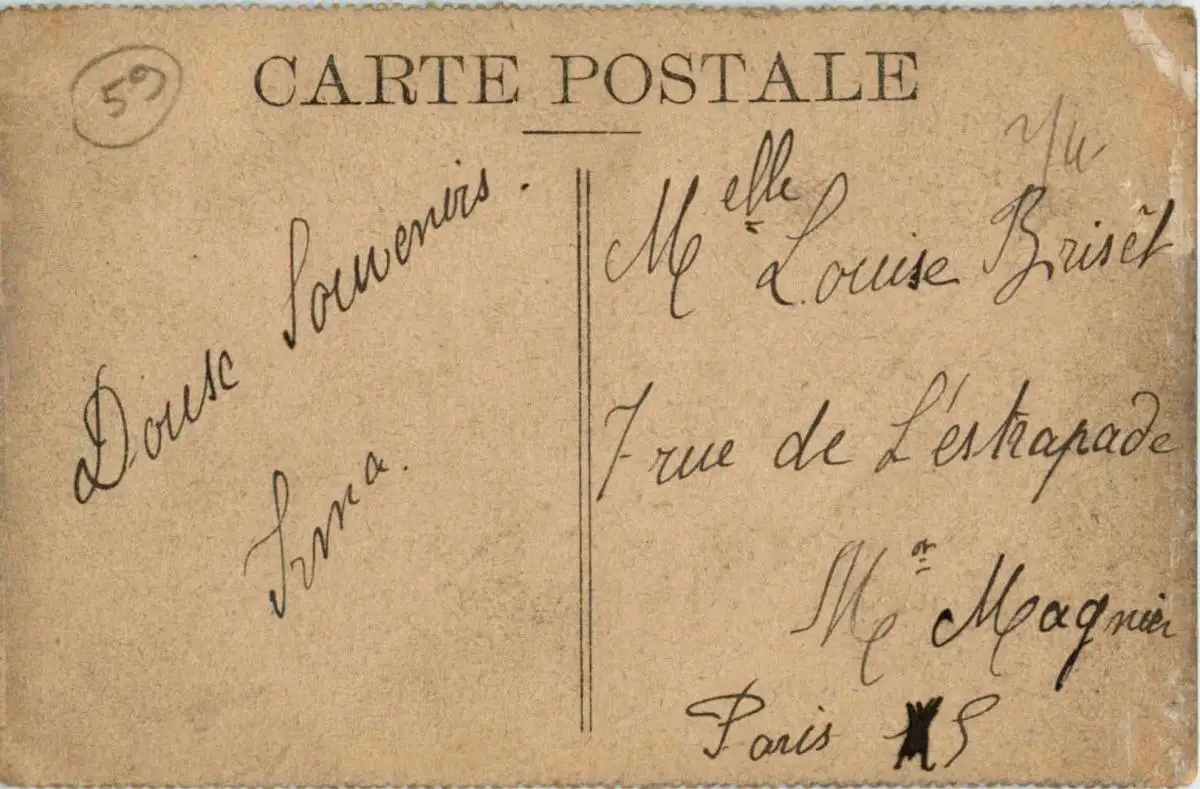 59
CARTE POSTALE
Doux Souvenirs.
Irma.
Melle Louise Brisêt
7 rue de L'estrapade
Mon Magnier
Paris 5